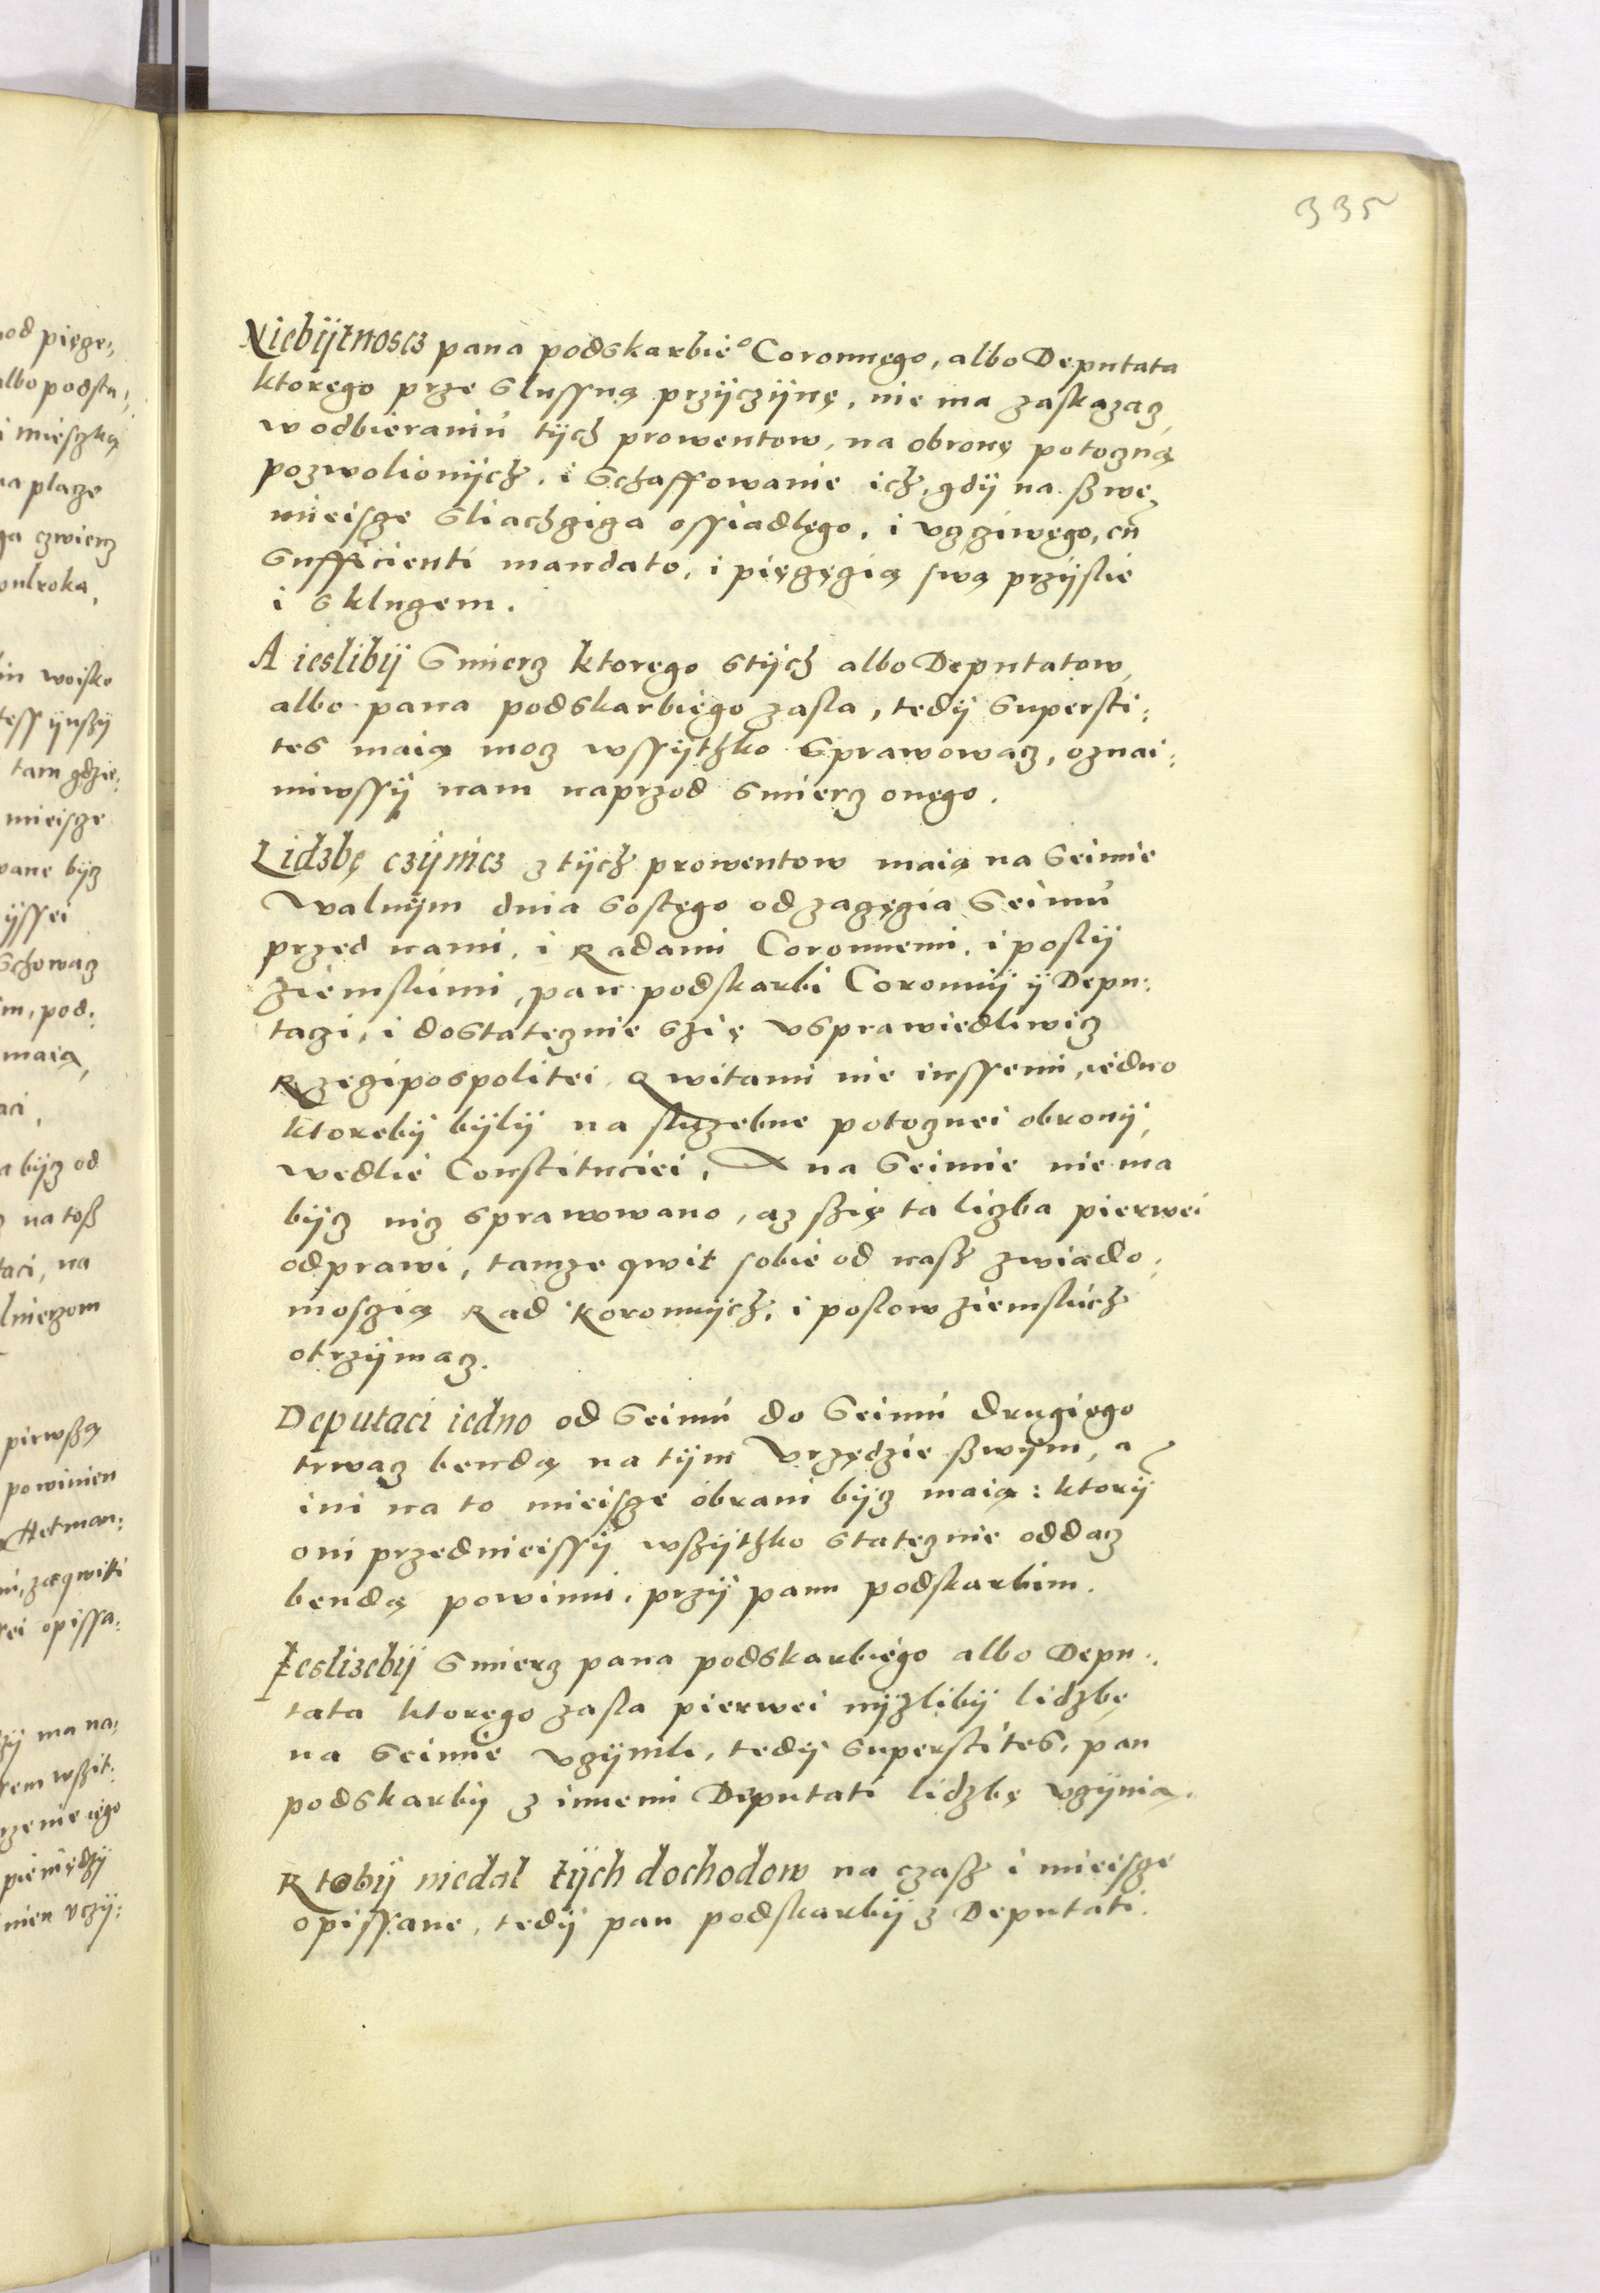 335
Niebÿtnoscz pana podskarbieº Coronnęgo, albo Deputata
ktorego prze slussną przÿczÿnę, nie ma zaskazacz
w odbieraniu tÿch prowentow, na obronę potoczną
pozwolionÿch, i schaffowanie ich, gdÿ na ßwe
mieisce sliachcicza ossiadłęgo, i vczciwęgo, cũ
sufficienti mandato, i pięczęcią swą przÿslie
i s kluczem.
A ieslibÿ smiercz ktorego s tÿch albo Deputatow,
albo pana podskarbiego zasla, tedÿ supersti:
tes maią mocz wssÿthko sprawowacz, oznai:
miwssÿ nam naprzod smiercz onęgo.
Lidzbę czÿnicz z tÿch prowentow maią na Seimie
Walnÿm dnia sostęgo od zaczęcia Seimu
przed nami, i Radami Coronnemi, i poslÿ
ziemskimi, pan podskarbi Coronnÿ ÿ Depu:
taczi, i dostatecznie szię vsprawiedliwicz
Rzeczipospolitei Qwitami nie inssemi, iedno
ktorebÿ bÿlÿ na sluzebne potocznei obronÿ,
wedlie Constituciei, A na Seimie nie ma
bÿcz nicz sprawowano, az ßię ta liczba pierwei
odprawi, tamze qwit sobie od naß z wiado:
moscią Rad Koronnÿch, i poslow ziemskich
otrzÿmacz.
Deputaci iedno od Seimu do Seimu drugięgo
trwacz bendą na tÿm Vrzędzie ßwÿm, a
ini na to mieisce obrani bÿcz maią: ktorÿ
oni przednieissÿ wßÿthko statecznie oddacz
bendą powinni, przÿ panu podskarbim.
Jeslizebÿ smiercz pana podskarbiego albo Depu:
tata ktorego zasla pierwei nÿzlibÿ lidzbę
na Seimie vczÿnili, tedÿ superstites, pan
podskarbÿ z innemi Deputati lidzbę vczÿnią.
Ktobÿ niedal tÿch dochodow na czaß i mieisce
opissane, tedÿ pan podskarbÿ z Deputati.
od pięcze:
albo podsta:
i mieszka
na placze
ga czwiercz
pulroka,
woisko
tam gdzie:
mieisce
wane bÿcz
schowacz
pod:
maią,
aci,
a bÿcz od
na toß
taci, na
lnierzom
pirwßą
powinien
Hetman:
qwiti
rei opissa:
ma na:
rem wßit:
pieniędzÿ
nien vczÿ: